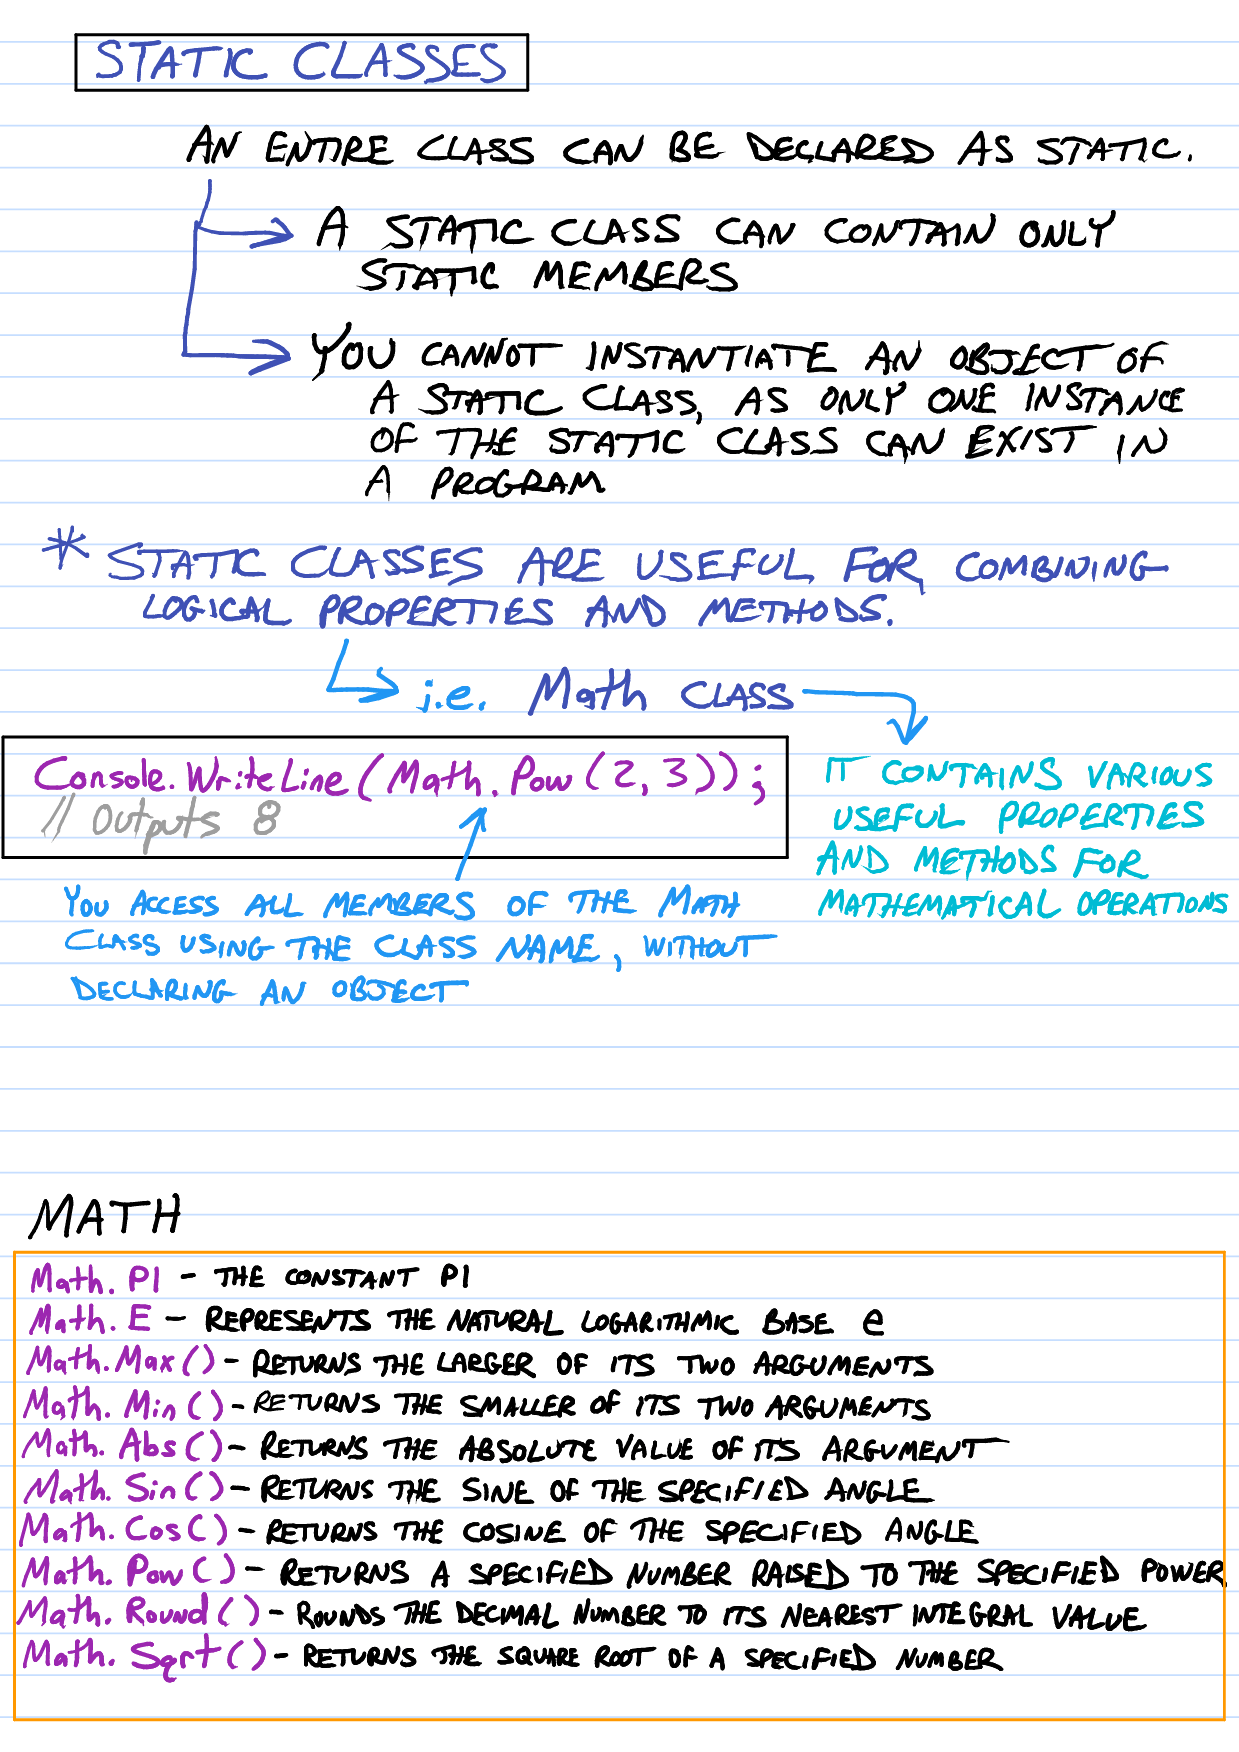 STATIC CLASSES
AN ENTIRE CLASS CAN BE DECLARED AS STATIC.
A STATIC CLASS CAN CONTAIN ONLY
STATIC MEMBERS
YOU CANNOT INSTANTIATE AN OBJECT OF
A STATIC CLASS, AS ONLY ONE INSTANCE
OF THE STATIC CLASS CAN EXIST IN
A PROGRAM
* STATIC CLASSES ARE USEFUL FOR COMBINING
LOGICAL PROPERTIES AND METHODS.
i.e. Math CLASS
Console.WriteLine(Math.Pow(2,3));
// Outputs 8
IT CONTAINS VARIOUS
USEFUL PROPERTIES
AND METHODS FOR
MATHEMATICAL OPERATIONS
YOU ACCESS ALL MEMBERS OF THE MATH
CLASS USING THE CLASS NAME, WITHOUT
DECLARING AN OBJECT
MATH
Math.PI - THE CONSTANT PI
Math.E - REPRESENTS THE NATURAL LOGARITHMIC BASE e
Math.Max() - RETURNS THE LARGER OF ITS TWO ARGUMENTS
Math.Min() - RETURNS THE SMALLER OF ITS TWO ARGUMENTS
Math.Abs() - RETURNS THE ABSOLUTE VALUE OF ITS ARGUMENT
Math.Sin() - RETURNS THE SINE OF THE SPECIFIED ANGLE
Math.Cos() - RETURNS THE COSINE OF THE SPECIFIED ANGLE
Math.Pow() - RETURNS A SPECIFIED NUMBER RAISED TO THE SPECIFIED POWER
Math.Round() - ROUNDS THE DECIMAL NUMBER TO ITS NEAREST INTEGRAL VALUE
Math.Sqrt() - RETURNS THE SQUARE ROOT OF A SPECIFIED NUMBER